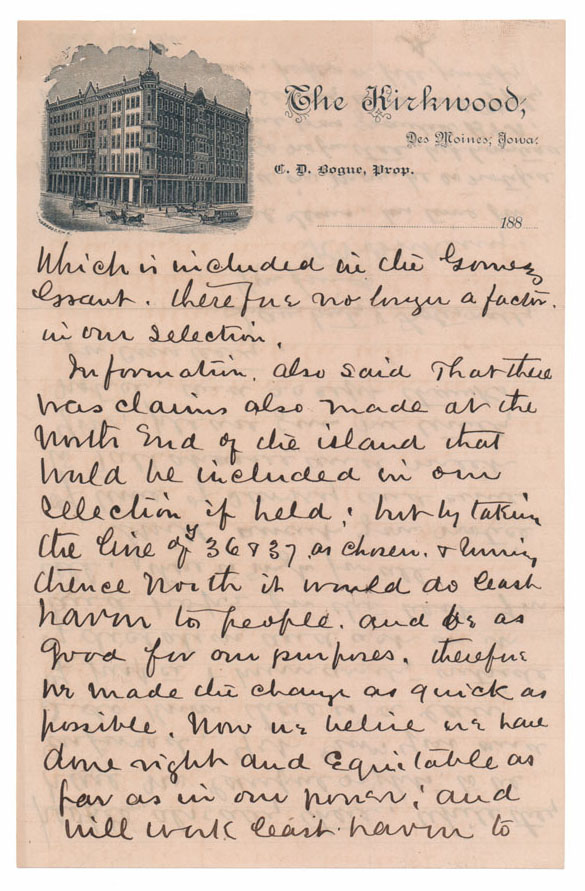 The Kirkwood,
Des Moines, Iowa.
C. D. Bogue, Prop.
188
Which is included in the Gomez
Grant. therefore no longer a factor.
in our selection.
Information. also said That there
was claims also made at the
North End of the island that
would be included in our
selection if held; but by taking
the line of y 36 & 37. as chosen. & runing
thence North it would do least
havon to people. and be as
good for our purposes. therefore
we made the change as quick as
possible. Now we belive we have
done right and Equitable as
far as in our power; and
will work least havon to